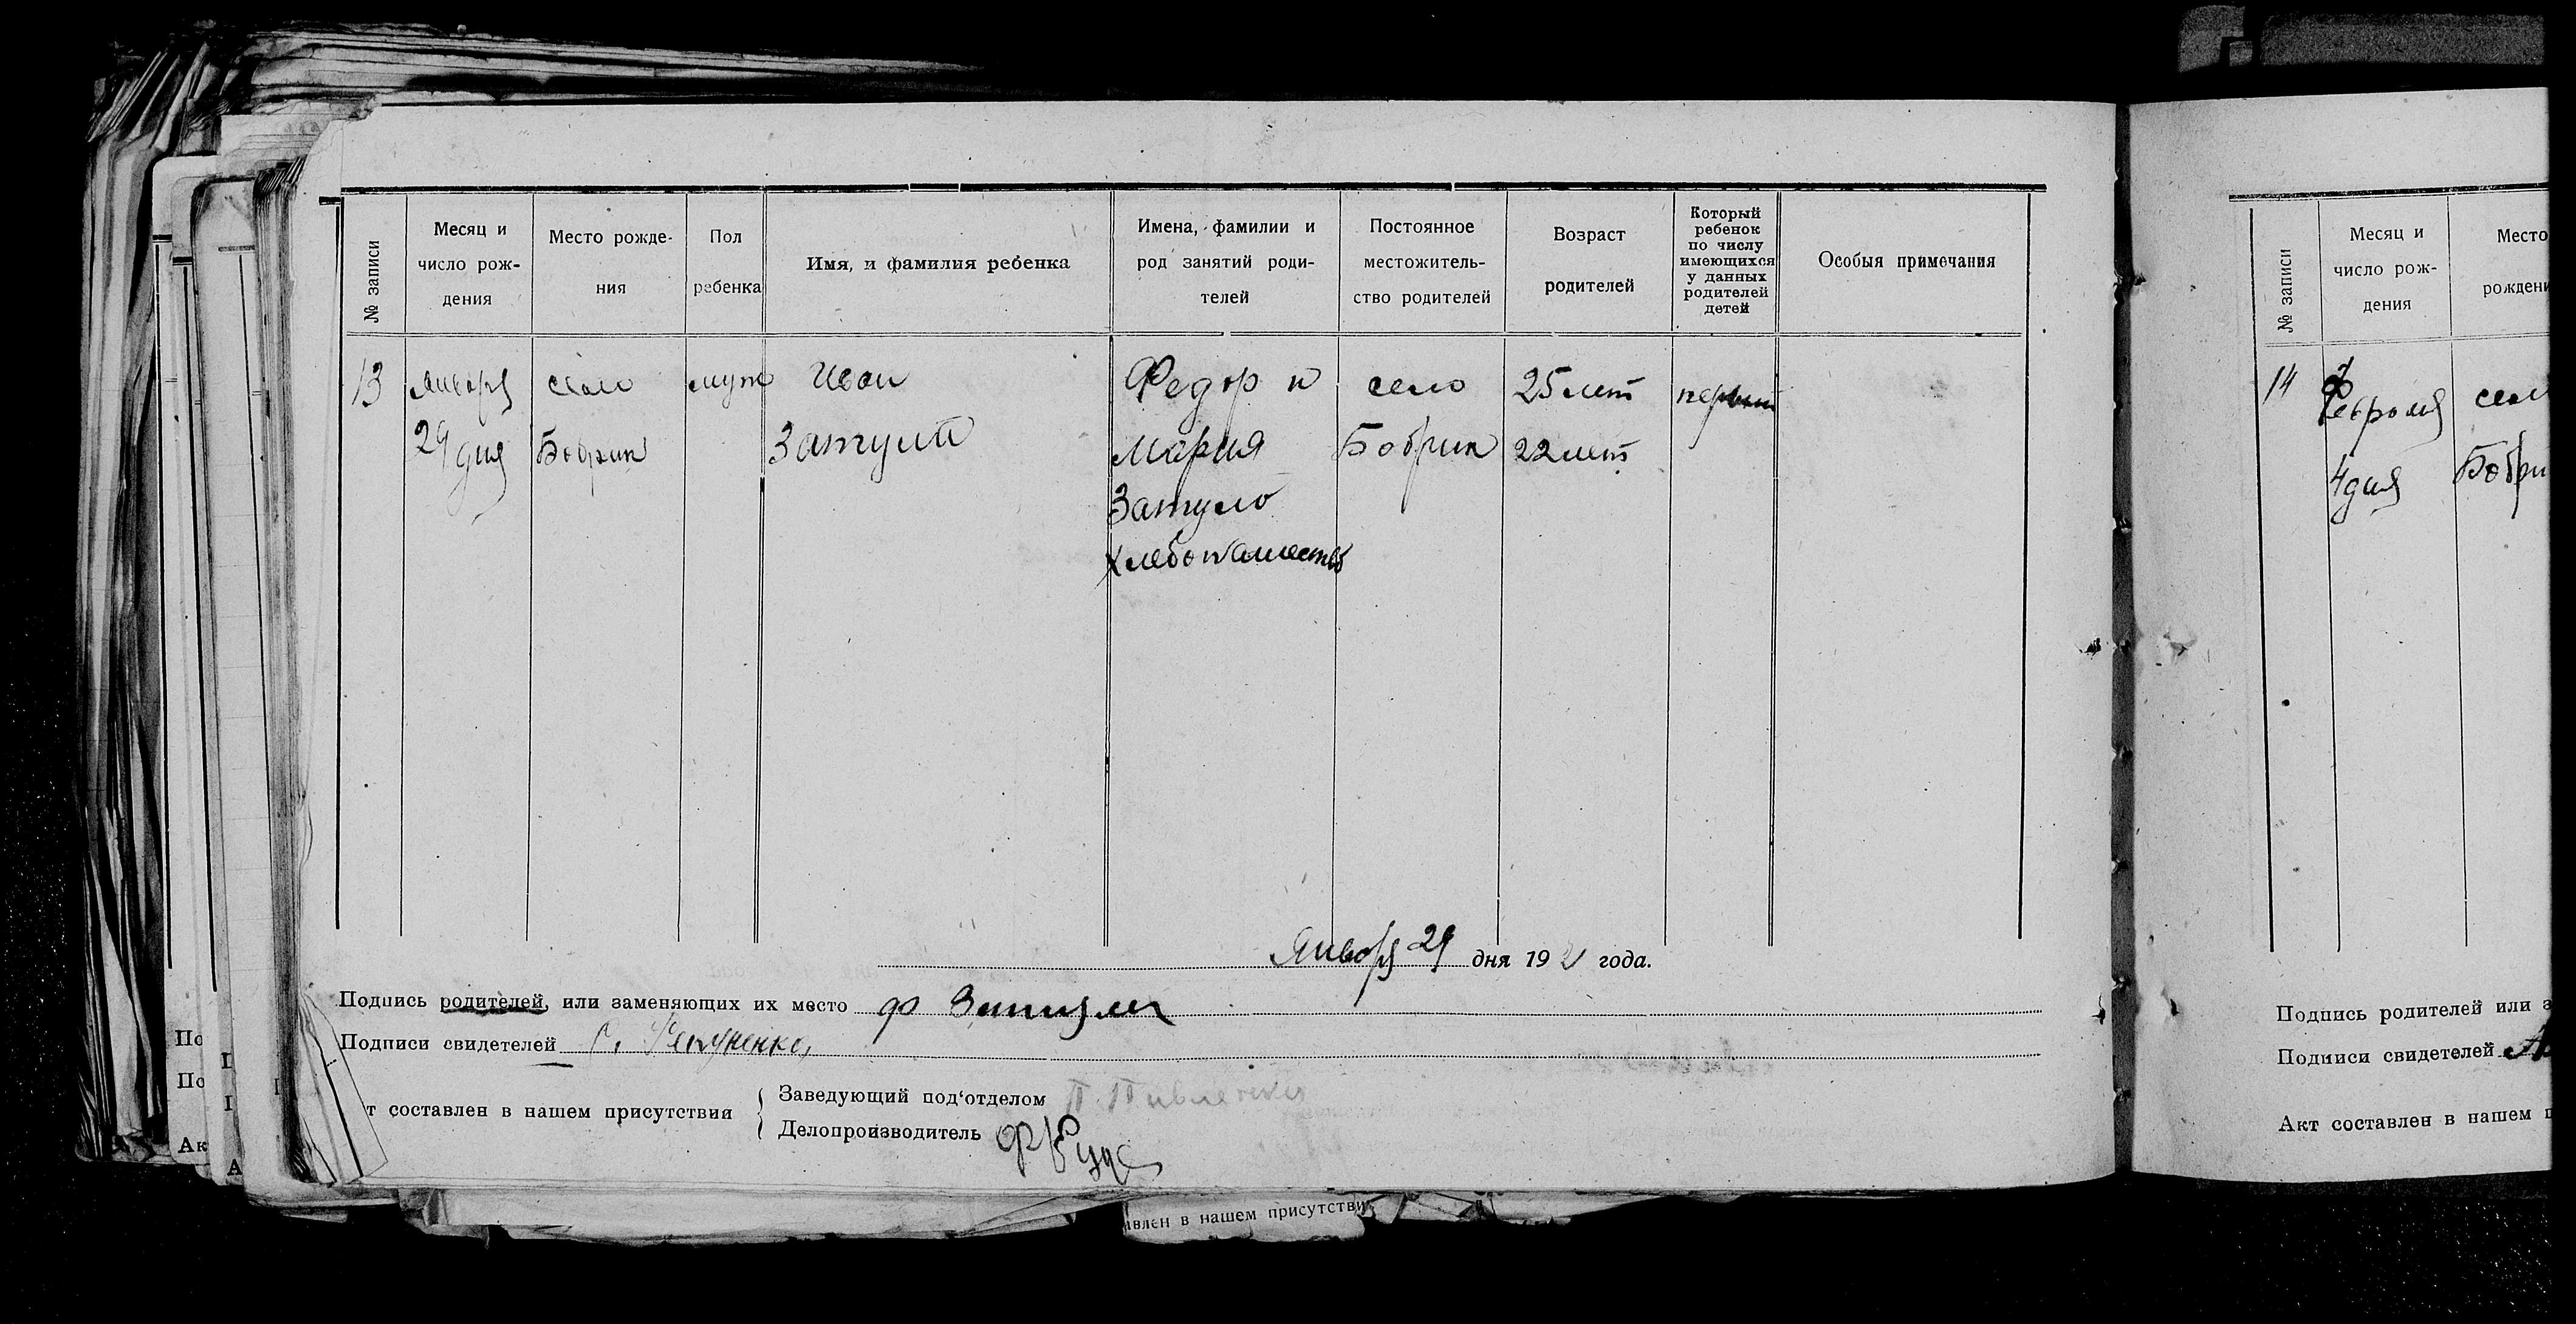 № записи
Месяц и
число рож-
дения
Место рожде-
ния
Пол
ребенка
Имя, и фамилия ребенка
Имена, фамилии и
род занятий роди-
телей
Постоянное
местожитель-
ство родителей
Возраст
родителей
Который
ребенок
по числу
имеющихся
у данных
родителей
детей
Особыя примечания
13 Января село муж Иван Федор и село 25 лет первый
29 дня Бобрик Затули Мария Бобрик 22 лет
Затуло
Января 29 дня 192 года.
Подпись родителей, или заменяющих их место Ф Затула
Подписи свидетелей
т составлен в нашем присутствии
Заведующий под'отделом
Делопроизводитель
№ записи
Месяц и
число рож-
дения
Место
рождени
14 Февраля село
4 дня Бобри
Подпись родителей или з
Подписи свидетелей
Акт составлен в нашем п
По
По
Ак
А
авлен в нашем присутстви